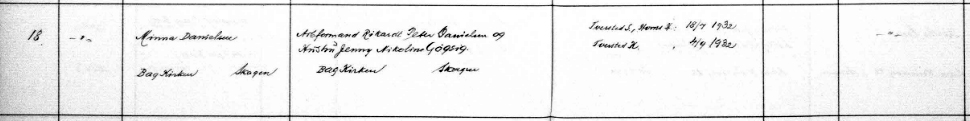 18. -"- Minna Danielsen Arbformand Rikardt Peter Danielsen og Tversted S., Horns H. 18/7 1932 -"-
Hustru Jenny Nikoline Gøgsig. Tversted K. , 4/9 1932
Bag Kirken Skagen Bag Kirken Skagen